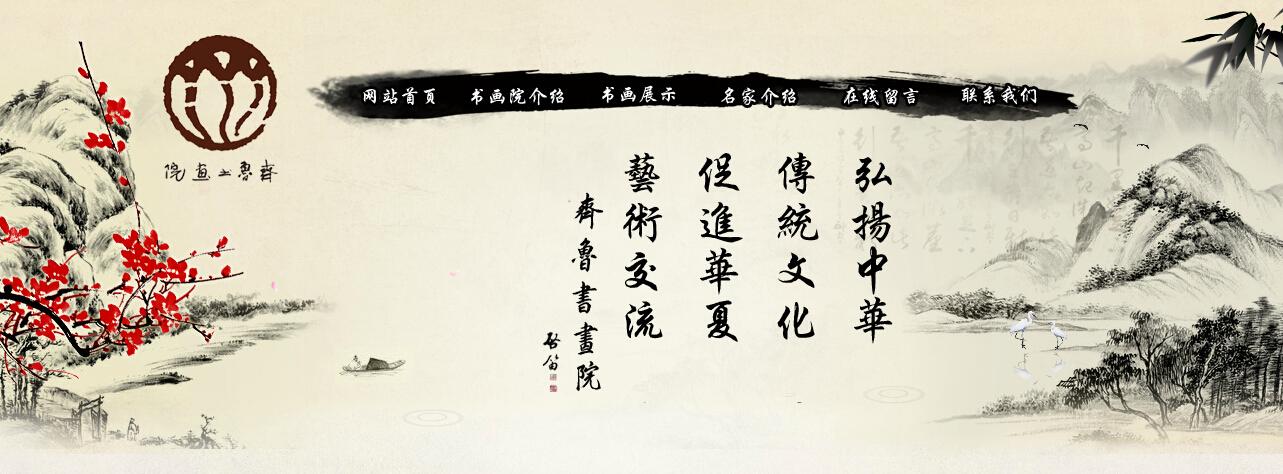 网站首页 书画院介绍 书画展示 名家介绍 在线留言 联系我们
弘揚中華
傳統文化
促進華夏
藝術交流
齊魯書畫院
齊魯书畫院